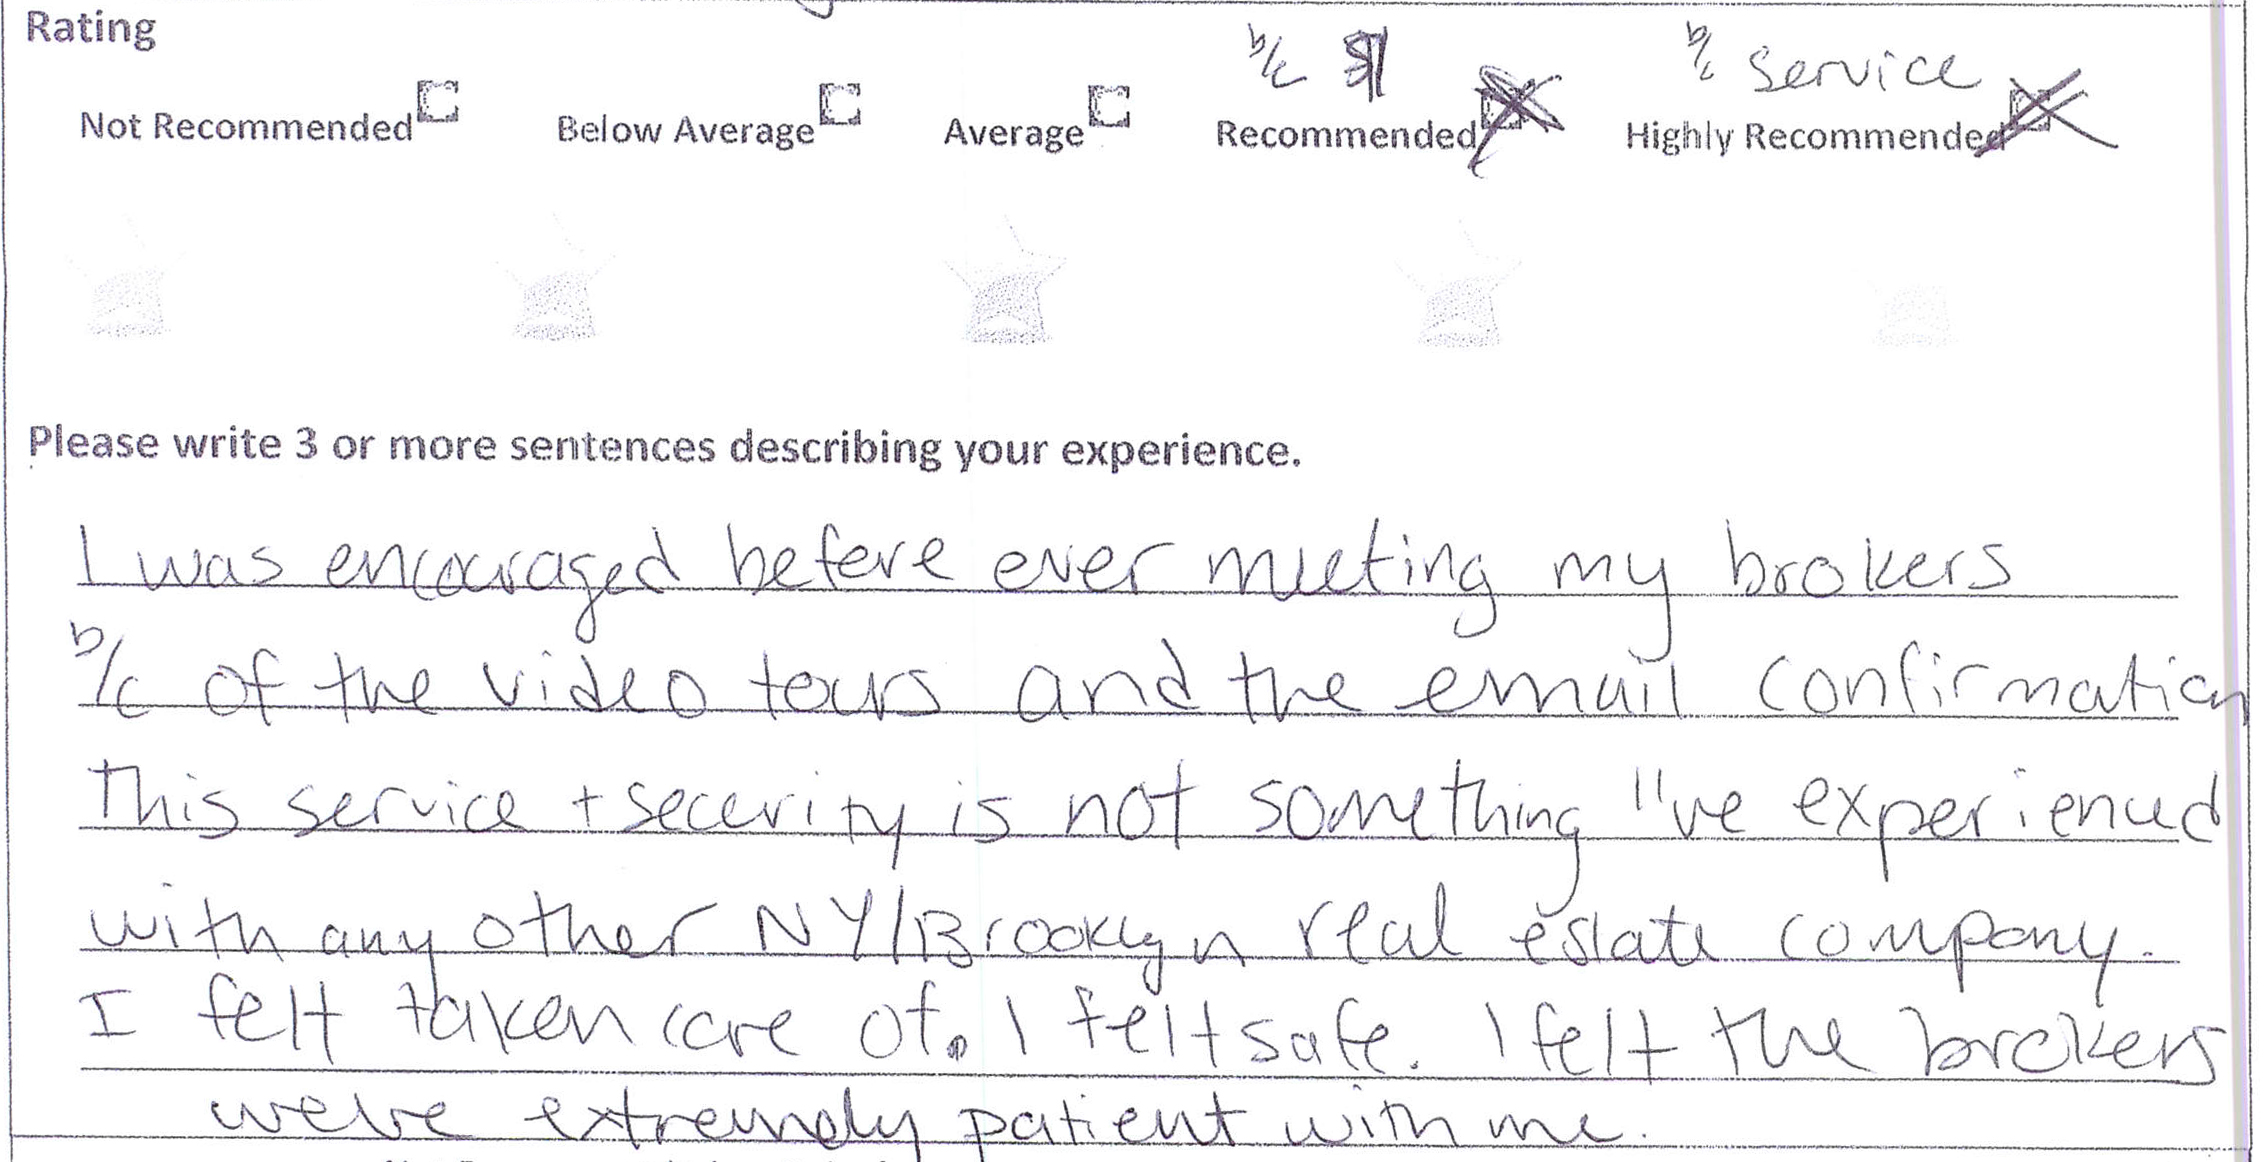 Rating
b/c $ b/c service
Not Recommended Below Average Average Recommended Highly Recommended
Please write 3 or more sentences describing your experience.
I was encouraged before ever meeting my brokers
b/c of the video tours and the email confirmation
This service + security is not something I've experienced
with any other NY/Brooklyn real estate company.
I felt taken care of. I felt safe. I felt the brokers
were extremely patient with me.